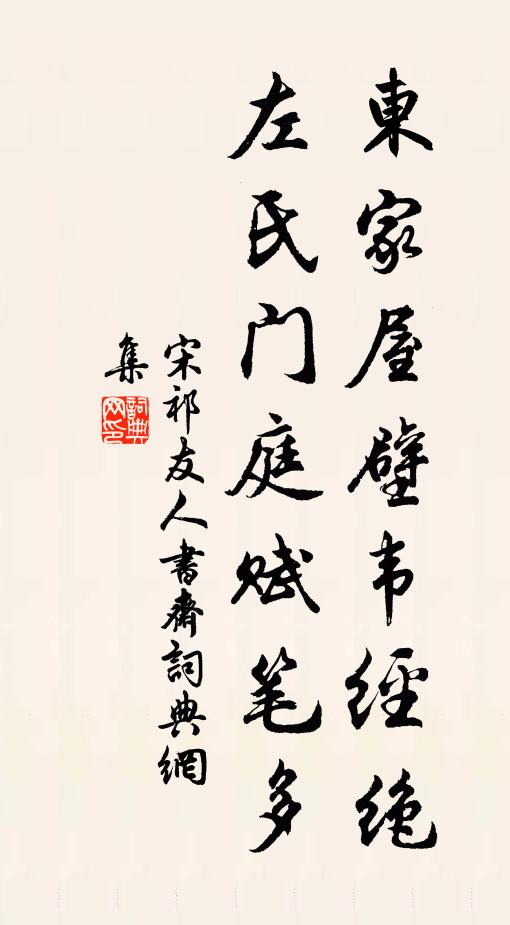 東家屋壁韦經绝
左氏门庭赋笔多
宋祁友人書齋詞典網
集
詞典網印